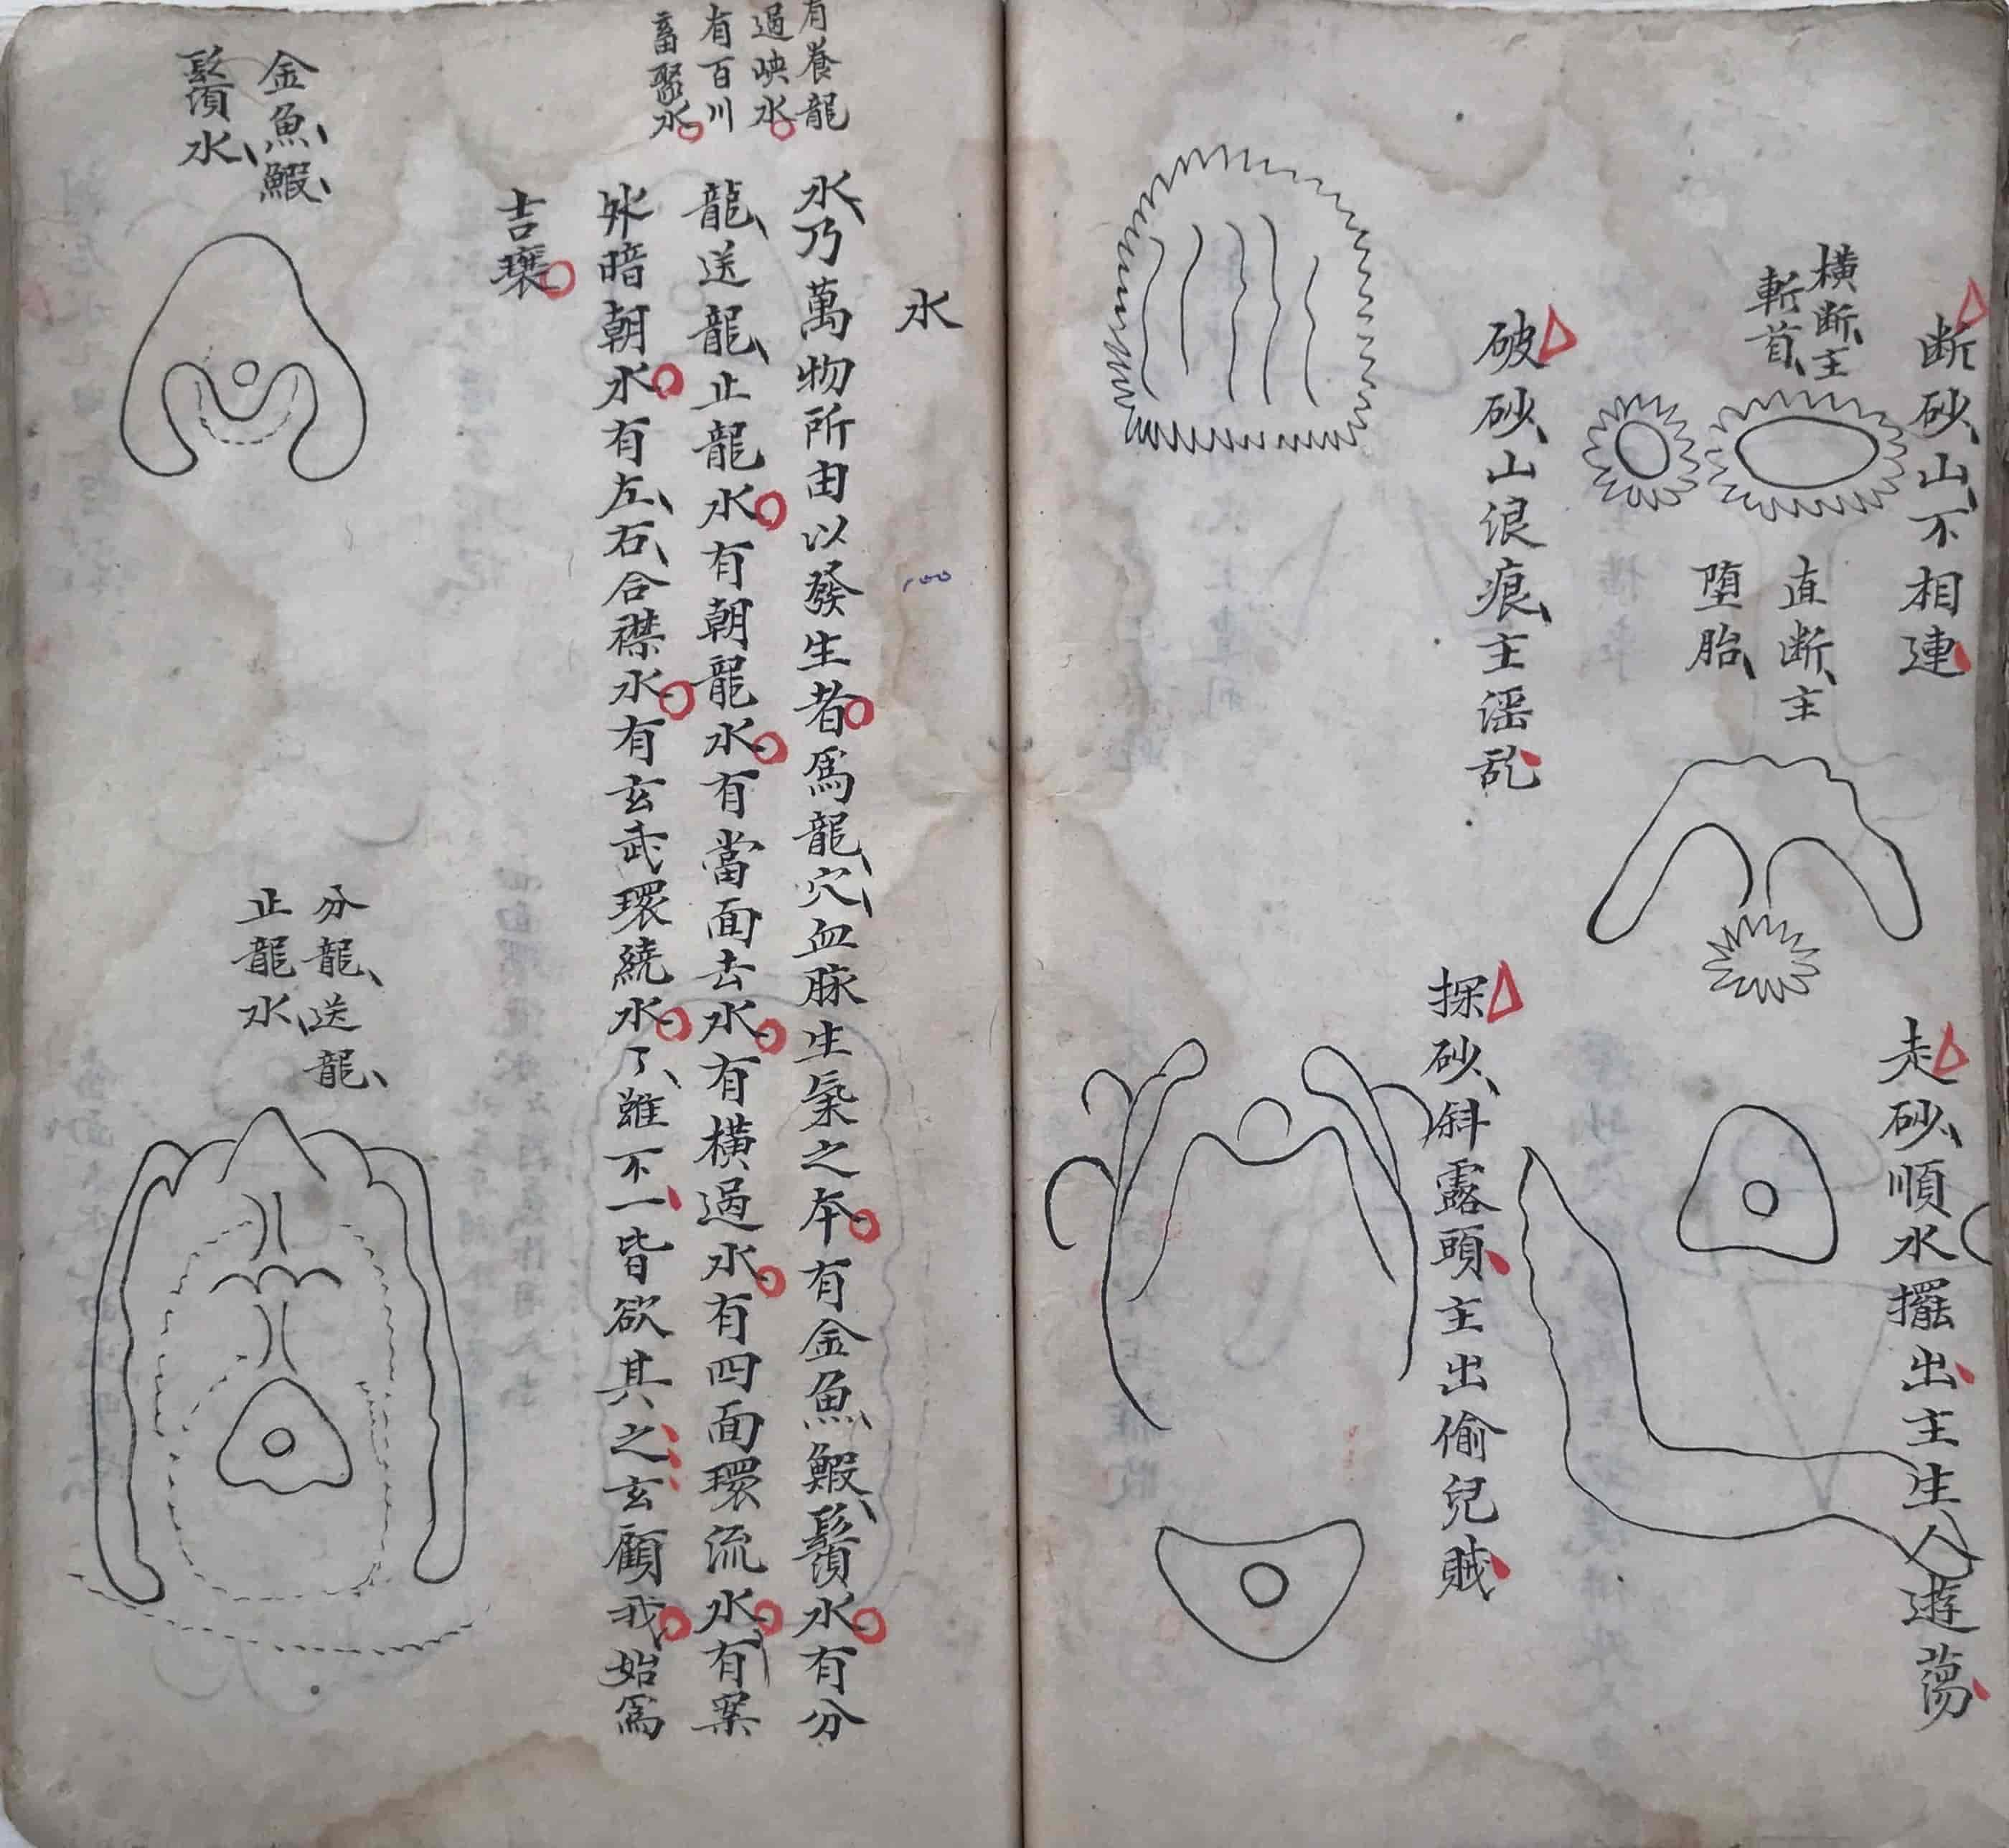 断砂山不相連
横断主
斬首
直断主
堕胎
走砂順水擺出主生人遊蕩
破砂山浪痕主滛乱
探砂斜露頭主出偷兒賊
水
有養龍
過峡水
有百川
畜聚水
水乃萬物所由以發生者爲龍穴血脉生氣之本有金魚鰕鬚水有分
龍送龍止龍水有朝龍水有當面去水有横過水有四面環流水有案
外暗朝水有左右合襟水有玄武環繞水了雖不一皆欲其之玄顧我始爲
吉壤
金魚鰕
鬚水
分龍送龍
止龍水